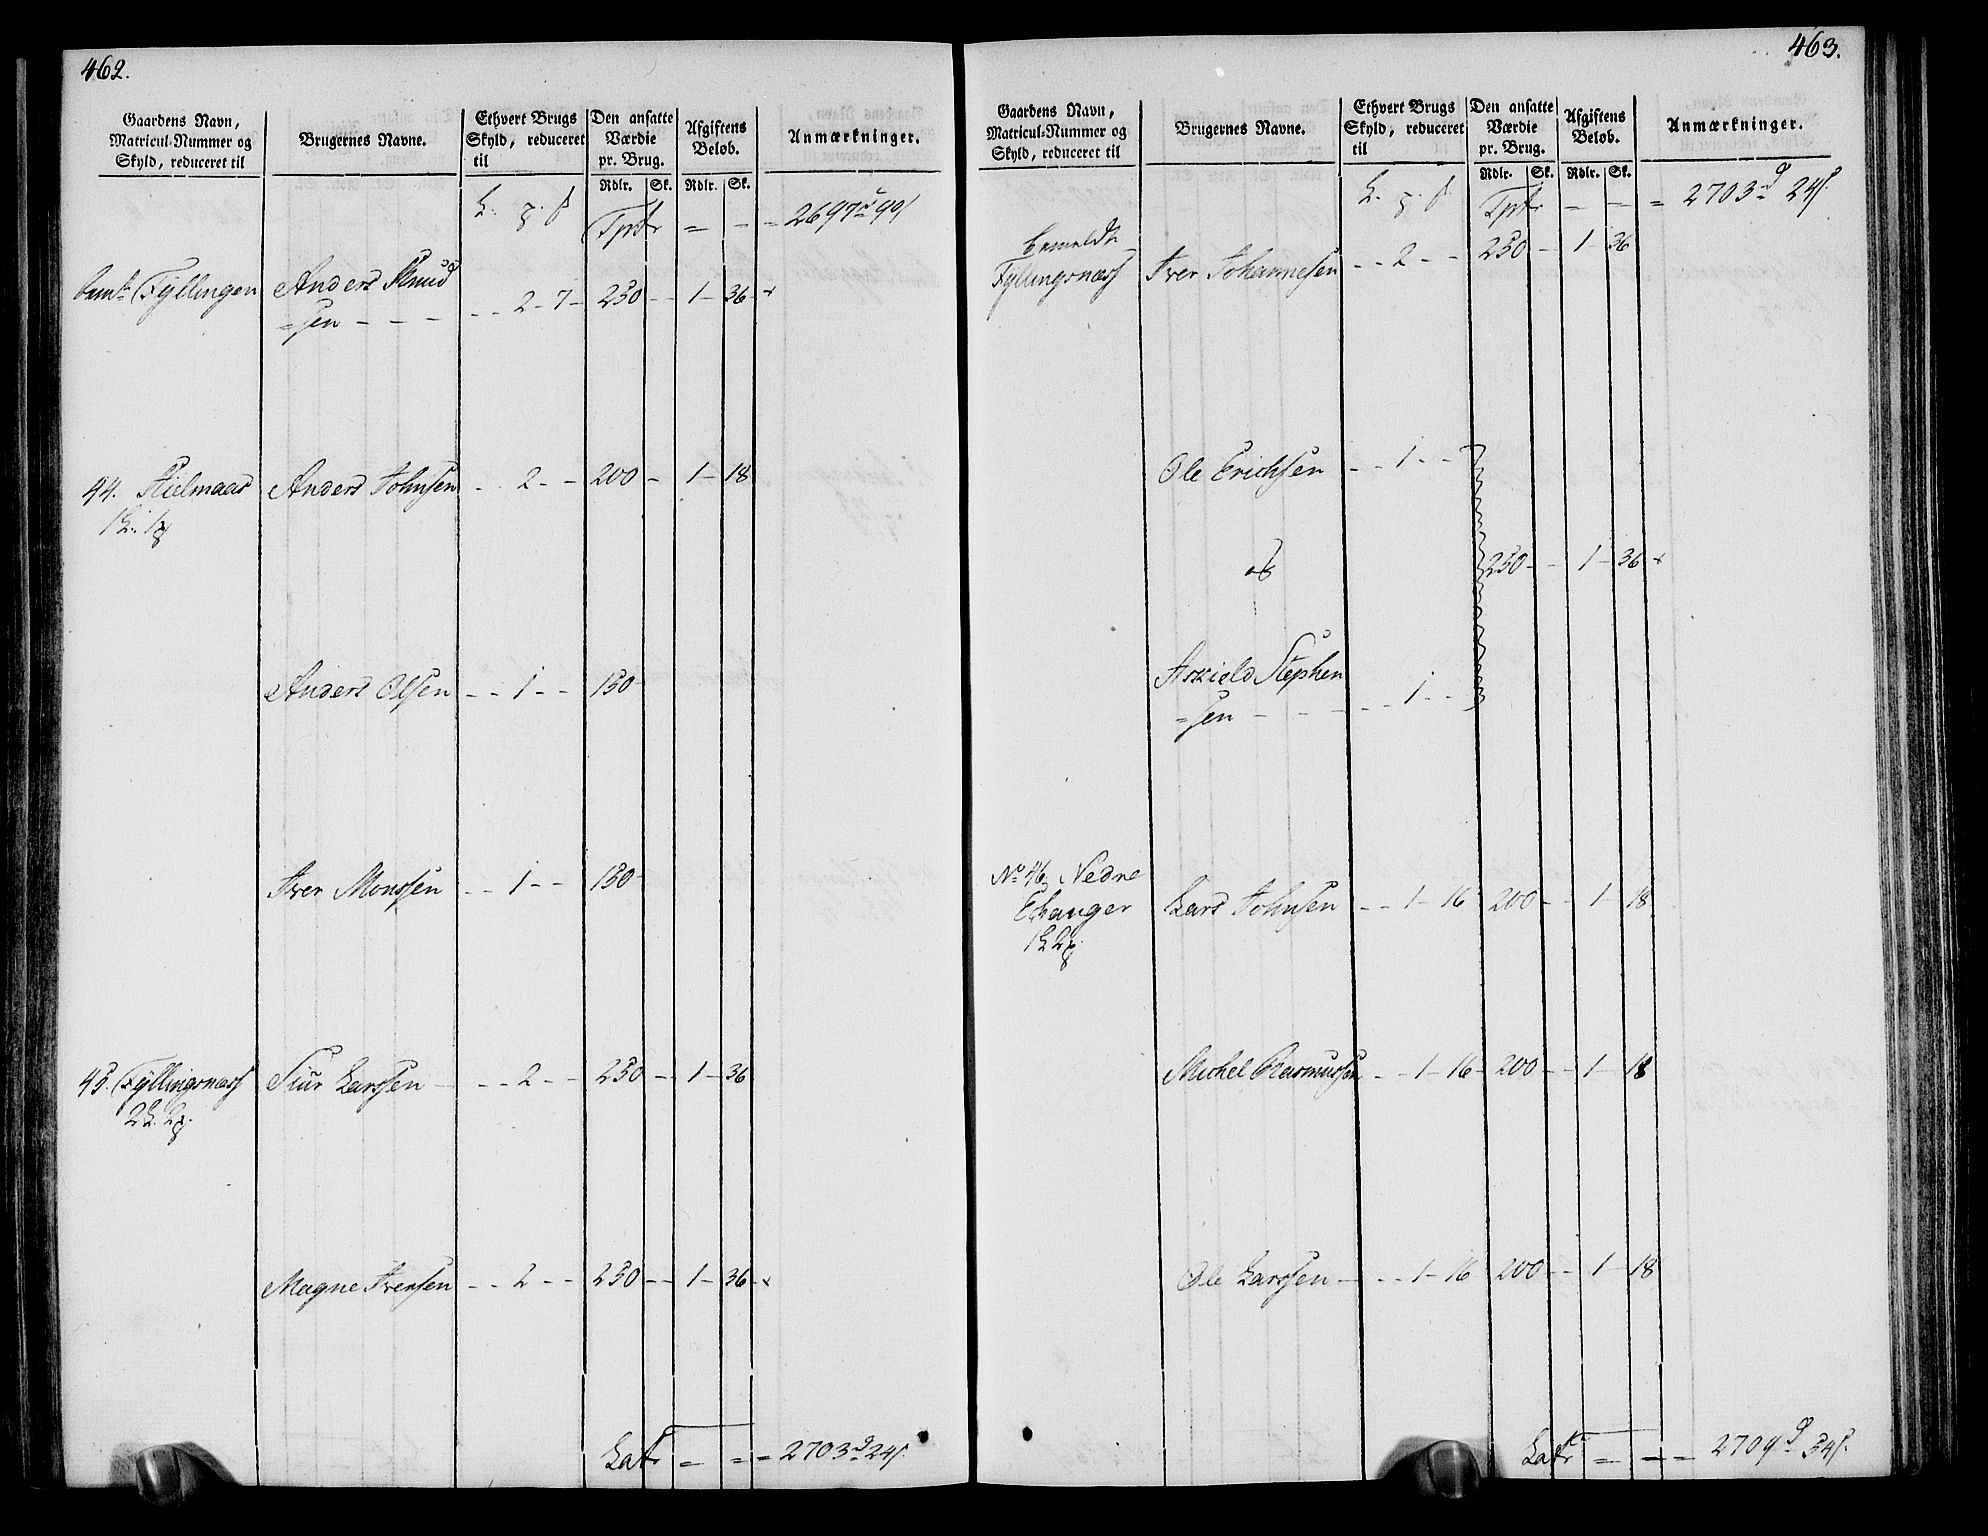 462.
Gaardens Navn, Matricul-Nummer og Skyld, reduceret til
Brugernes Navne.
Ethvert Brugs Skyld, reduceret til
Den ansatte Værdie pr. Brug.
Afgiftens Beløb.
Anmærkninger.
Rdlr. Sk. Rdlr. Sk.
Tpt = - = 2697
Fyllingen Anders Knud
=sen - - - - - 2 - 7 - 250 - - 1 - 36
44. Kielmaas Anders Johnsen - - 2 - - 200 - 1 - 18
Anders Olsen - - 1 - - 150 -
Iver Monssen - - 1 - - 150 -
45. Fyllingsnæss Siur Larssen - - - 2 - - 250 - - 1 - 36
Magne Iversen - - 2 - - 250 - - 1 - 36
Lat = = = 2703 24
463.
Gaardens Navn, Matricul-Nummer og Skyld, reduceret til
Brugernes Navne.
Ethvert Brugs Skyld, reduceret til
Den ansatte Værdie pr. Brug.
Afgiftens Beløb.
Anmærkninger.
Rdlr. Sk. Rdlr. Sk.
= - = 2703 24
bemeldte
Fyllingsnæss Iver Johannesen - - 2 - - 250 - 1 - 36
Ole Erichsen - - 1 - -
og 250 - - 1 - 36
Askield Stephen
=sen - - - - - 1 - -
No 46, Nedre
Echanger Lars Johnsen - - 1 - 16 200 - - 1 - 18
Michel Rasmussen - - 1 - 16 - 200 - - 1 - 18
Ole Larssen - - - 1 - 16 200 - - 1 - 18
Lat = - = 2709 34